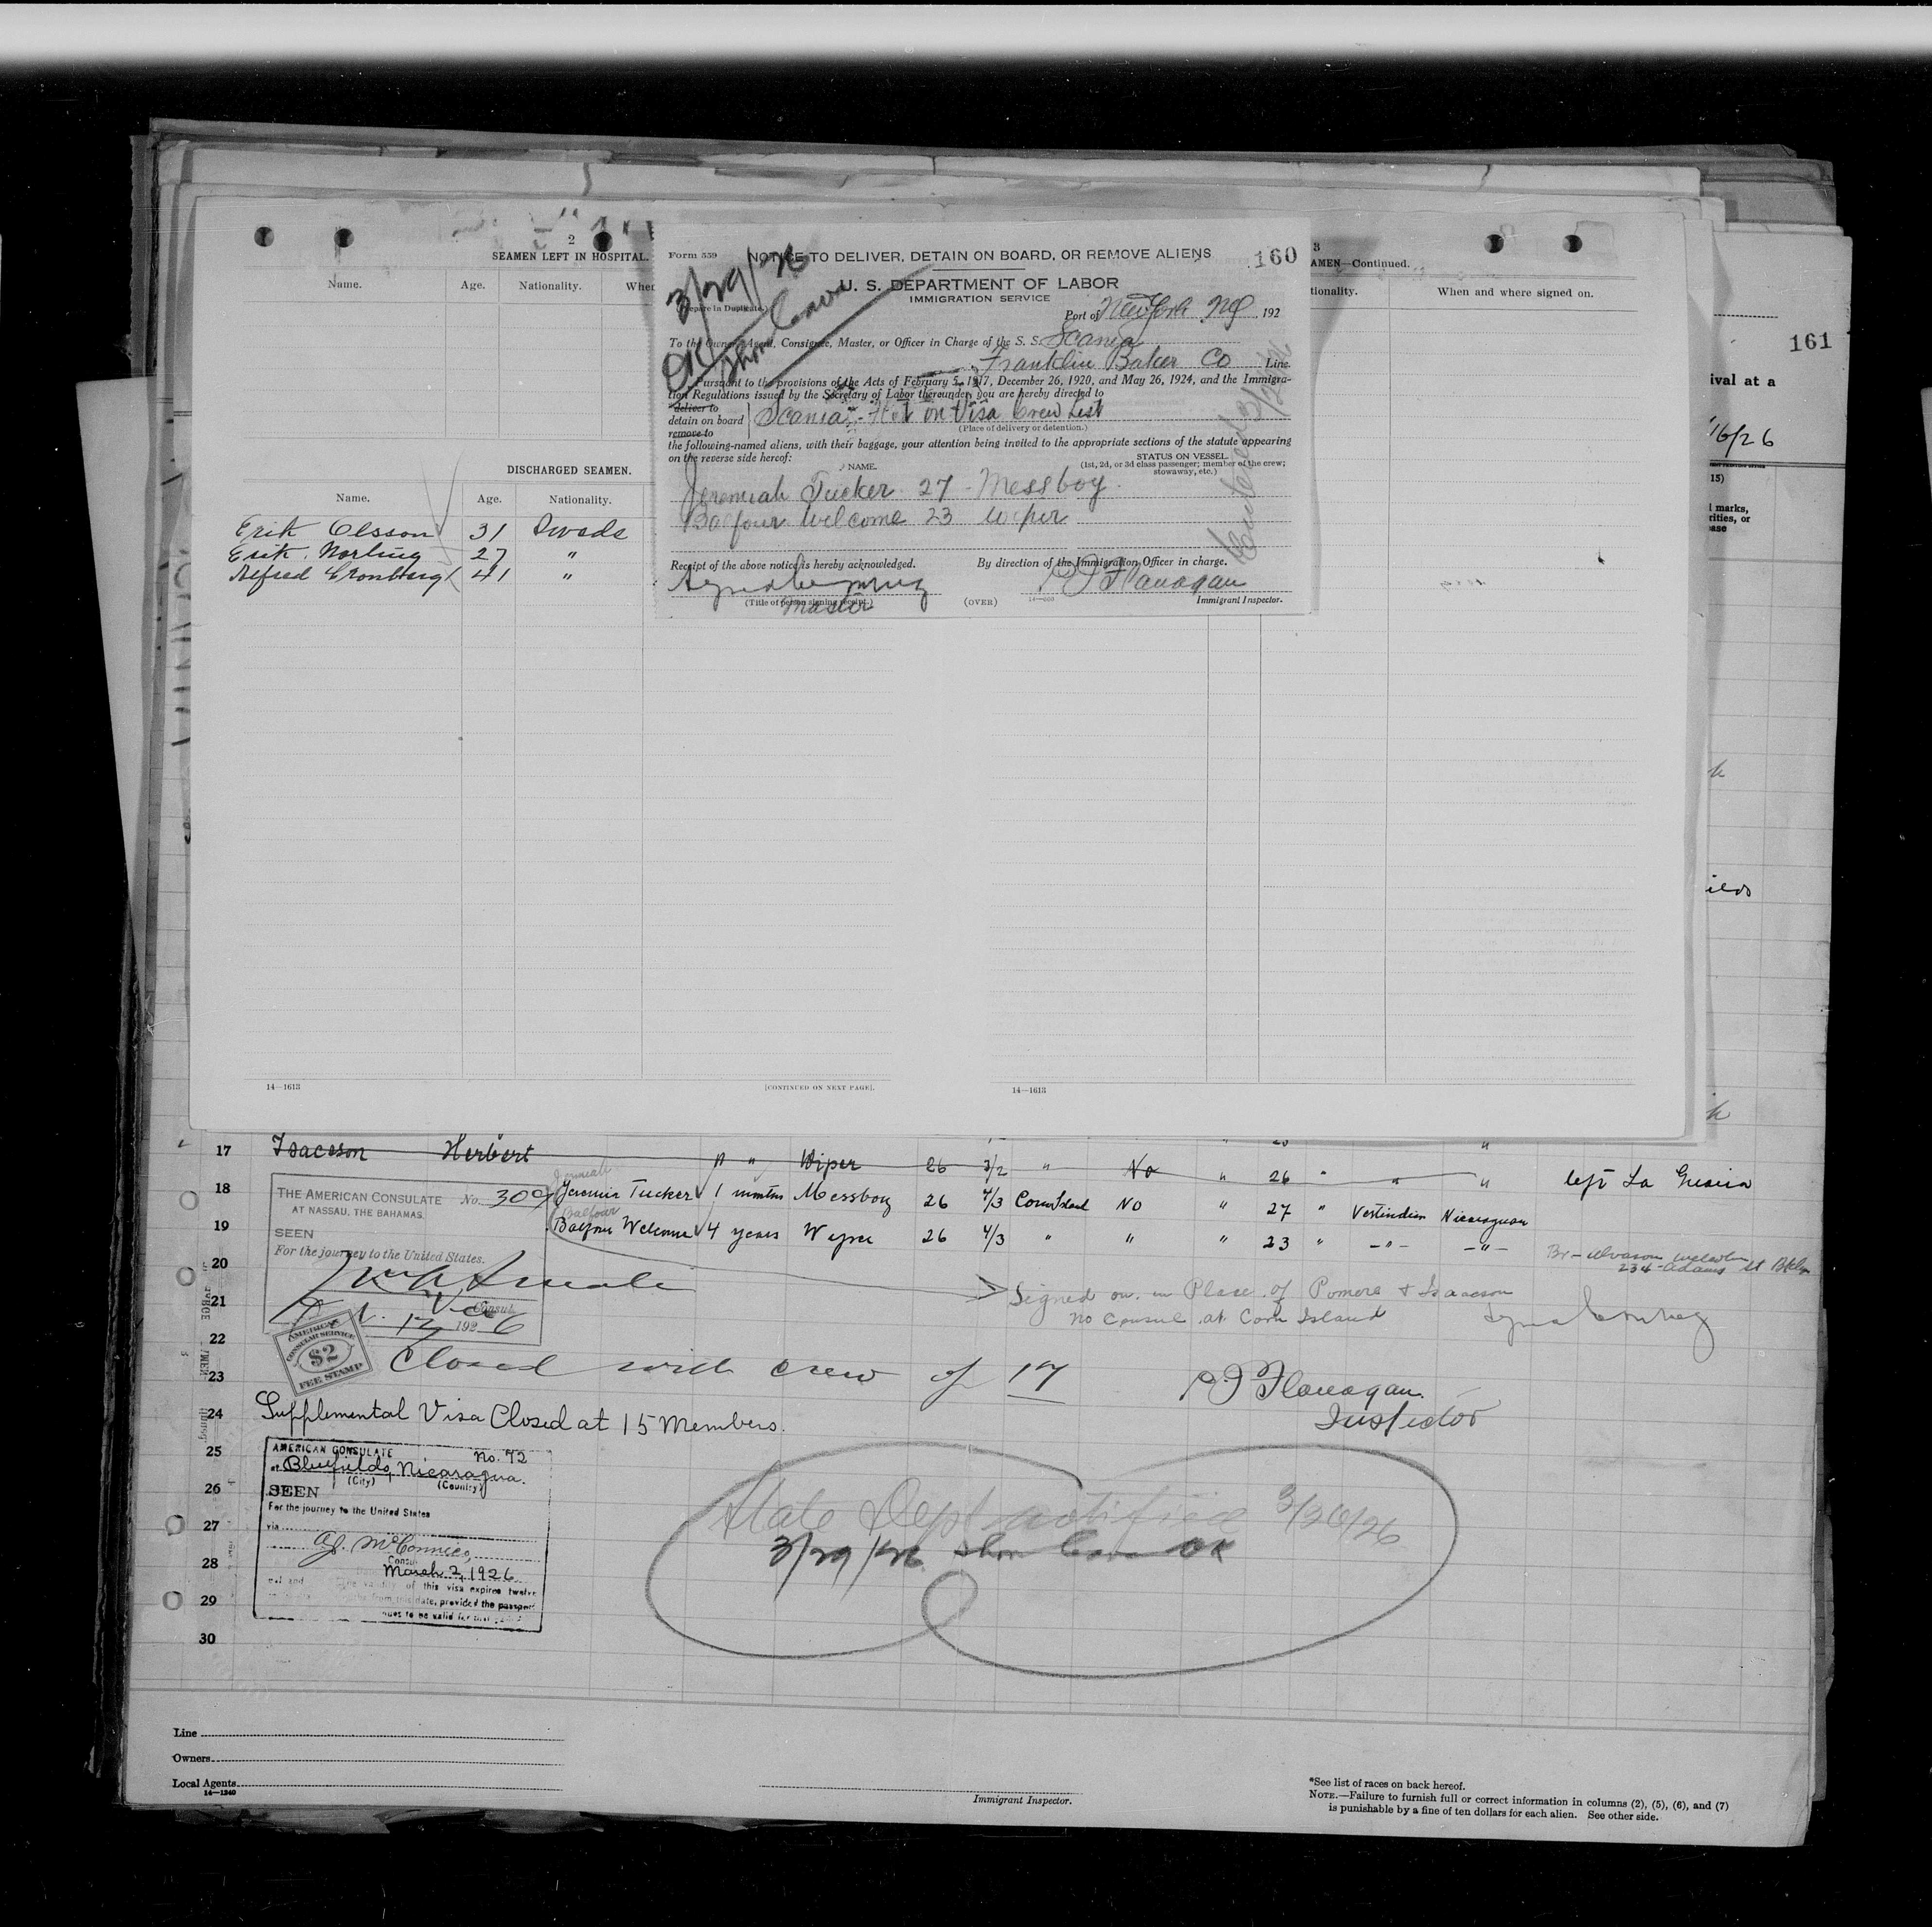 2
SEAMEN LEFT IN HOSPITAL.
Name. Age. Nationality. When
DISCHARGED SEAMEN.
Name. Age. Nationality.
Erik Olsson 31 Swede
Erik Norling 27 "
Alfred Cronberg 41 "
14—1613 [CONTINUED ON NEXT PAGE].
Form 559 NOTICE TO DELIVER, DETAIN ON BOARD, OR REMOVE ALIENS 160
3/29/26
OK
U. S. DEPARTMENT OF LABOR
IMMIGRATION SERVICE
(Prepare in Duplicate.)
Port of New York NY, 192
To the Owner, Agent, Consignee, Master, or Officer in Charge of the S. S. Scania
Franklin Baker Co Line.
Pursuant to the provisions of the Acts of February 5, 1917, December 26, 1920, and May 26, 1924, and the Immigra-
tion Regulations issued by the Secretary of Labor thereunder, you are hereby directed to
deliver to
detain on board Scania - Not on Visa Crew List
remove to (Place of delivery or detention.)
the following-named aliens, with their baggage, your attention being invited to the appropriate sections of the statute appearing
on the reverse side hereof:
NAME. STATUS ON VESSEL.
(1st, 2d, or 3d class passenger; member of the crew; stowaway, etc.)
Jeremiah Tucker 27 - Messboy
Balfour Welcome 23 Wiper
Receipt of the above notice is hereby acknowledged. By direction of the Immigration Officer in charge.
P J Flanagan
(Title of person signing receipt.) Master (OVER) 14—609 Immigrant Inspector.
3
AMEN—Continued.
tionality. When and where signed on.
14—1613
161
ival at a
16/26
15)
l marks,
rities, or
ease
17 Isaceson Herbert " " Wiper 26 3/2 " No " 26 " " " left La Guaira
18 Jeremia Tucker 1 months Messboy 26 4/3 Corn Island NO " 27 " Vestindien Nicaraguan
Jeremiah
19 Balfour Welcome 4 years Wiper 26 4/3 " " " 23 " -"- -"-
Balfour
234 Adams St Bklyn
20
21
22
23
24
25
26
27
28
29
30
THE AMERICAN CONSULATE No. 309
AT NASSAU, THE BAHAMAS.
SEEN
For the journey to the United States.
Vice Consul
12 1926
AMERICAN
CONSULAR SERVICE
$2
FEE STAMP
Signed on in Place of Pomera & Isaacson
No Consul at Corn Island
Closed with crew of 17
P J Flanagan.
Inspector
Supplemental Visa Closed at 15 Members.
AMERICAN CONSULATE No. 72
at Bluefields, Nicaragua.
(City) (Country)
SEEN
For the journey to the United States
via
A.J. McConnico,
Consul
March 2, 1926
of this visa expires twelve
from this date, provided the passport
State Dept notified 3/26/26
3/29/26 OK
Line
Owners
Local Agents
14—1240
Immigrant Inspector.
*See list of races on back hereof.
NOTE.—Failure to furnish full or correct information in columns (2), (5), (6), and (7)
is punishable by a fine of ten dollars for each alien. See other side.